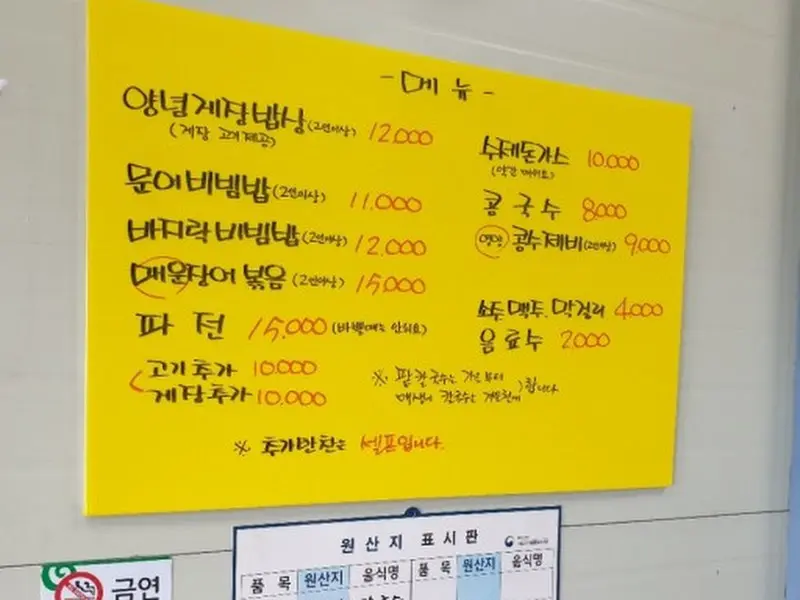 - 메 뉴 -
양념게장밥상 (2인이상) 12,000
(게장 고기제공)
문어비빔밥 (2인이상) 11,000
바지락비빔밥 (2인이상) 12,000
매운장어볶음 (2인이상) 15,000
파전 15,000 (바쁠때는 안돼요)
고기추가 10,000
게장추가 10,000
수제돈가스 10,000
(약간 매워요)
콩국수 8,000
콩수제비 (2인이상) 9,000
소주. 맥주. 막걸리 4,000
음료수 2,000
※ 팥칼국수는 가을부터
칼국수는 겨울한에 합니다
※ 추가반찬은 셀프입니다.
원산지 표시판
품 목 원산지 음식명 품 목 원산지 음식명
금연